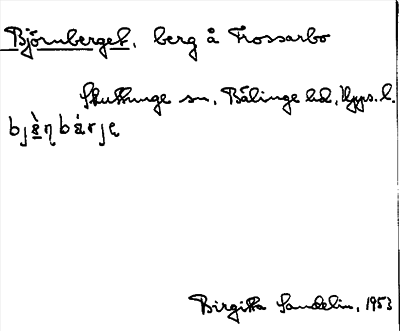 Björnberget, berg å Frossarbo
Skuttunge sn, Bälinge hd, Upps. l.
bjè̱ŋbárję
Birgitta Sandelin, 1953